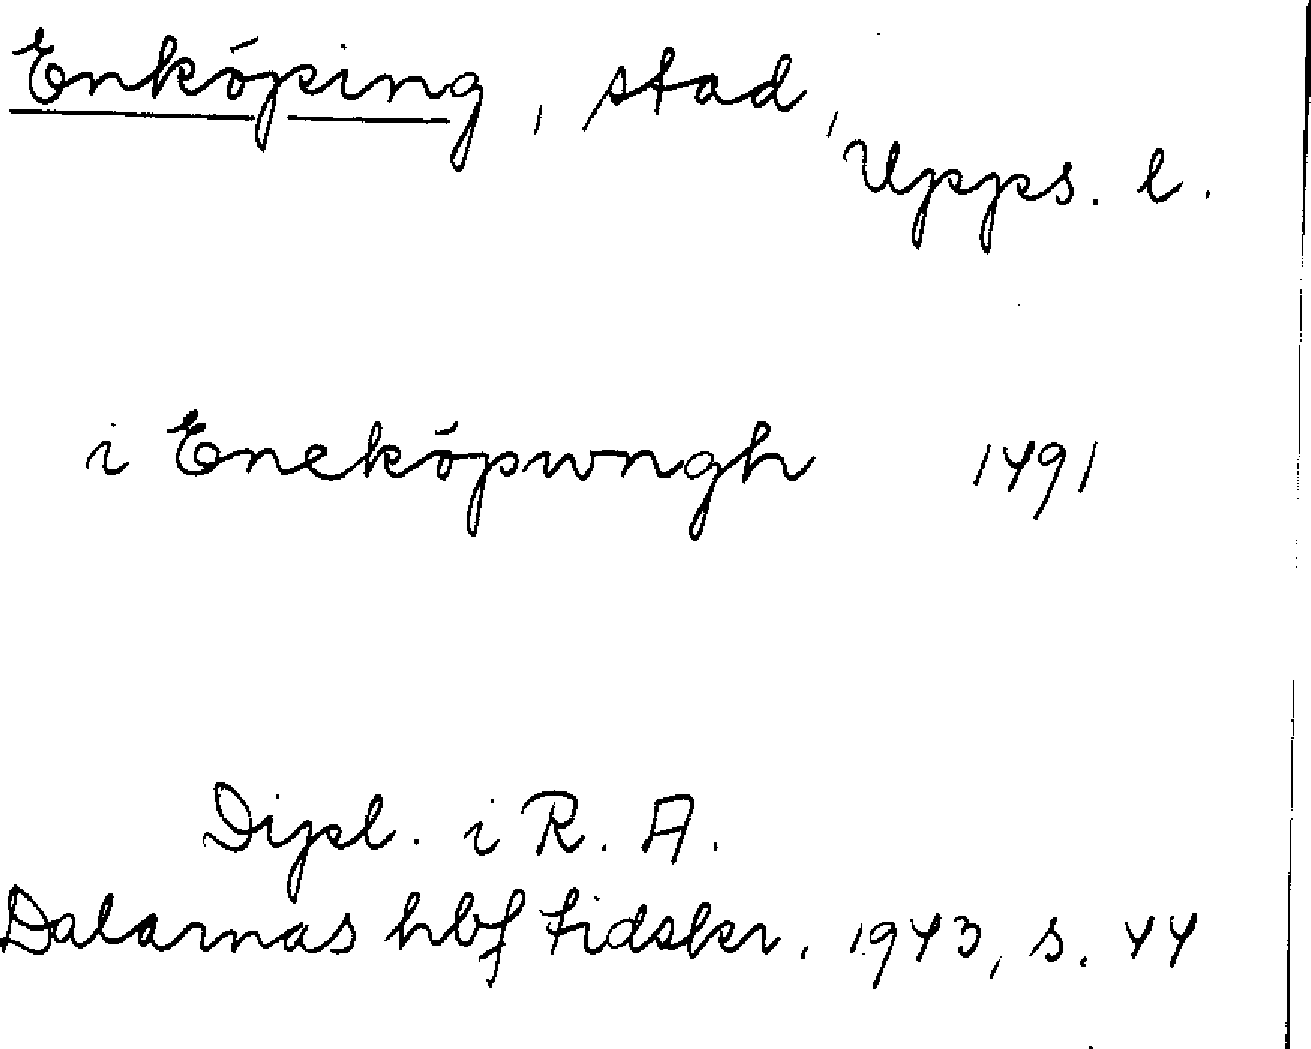 Enköping, stad,
Upps. l.
i Eneköpwngh 1491
Dipl. i R. A.
Dalarnas hbf tidskr. 1943, s. 44